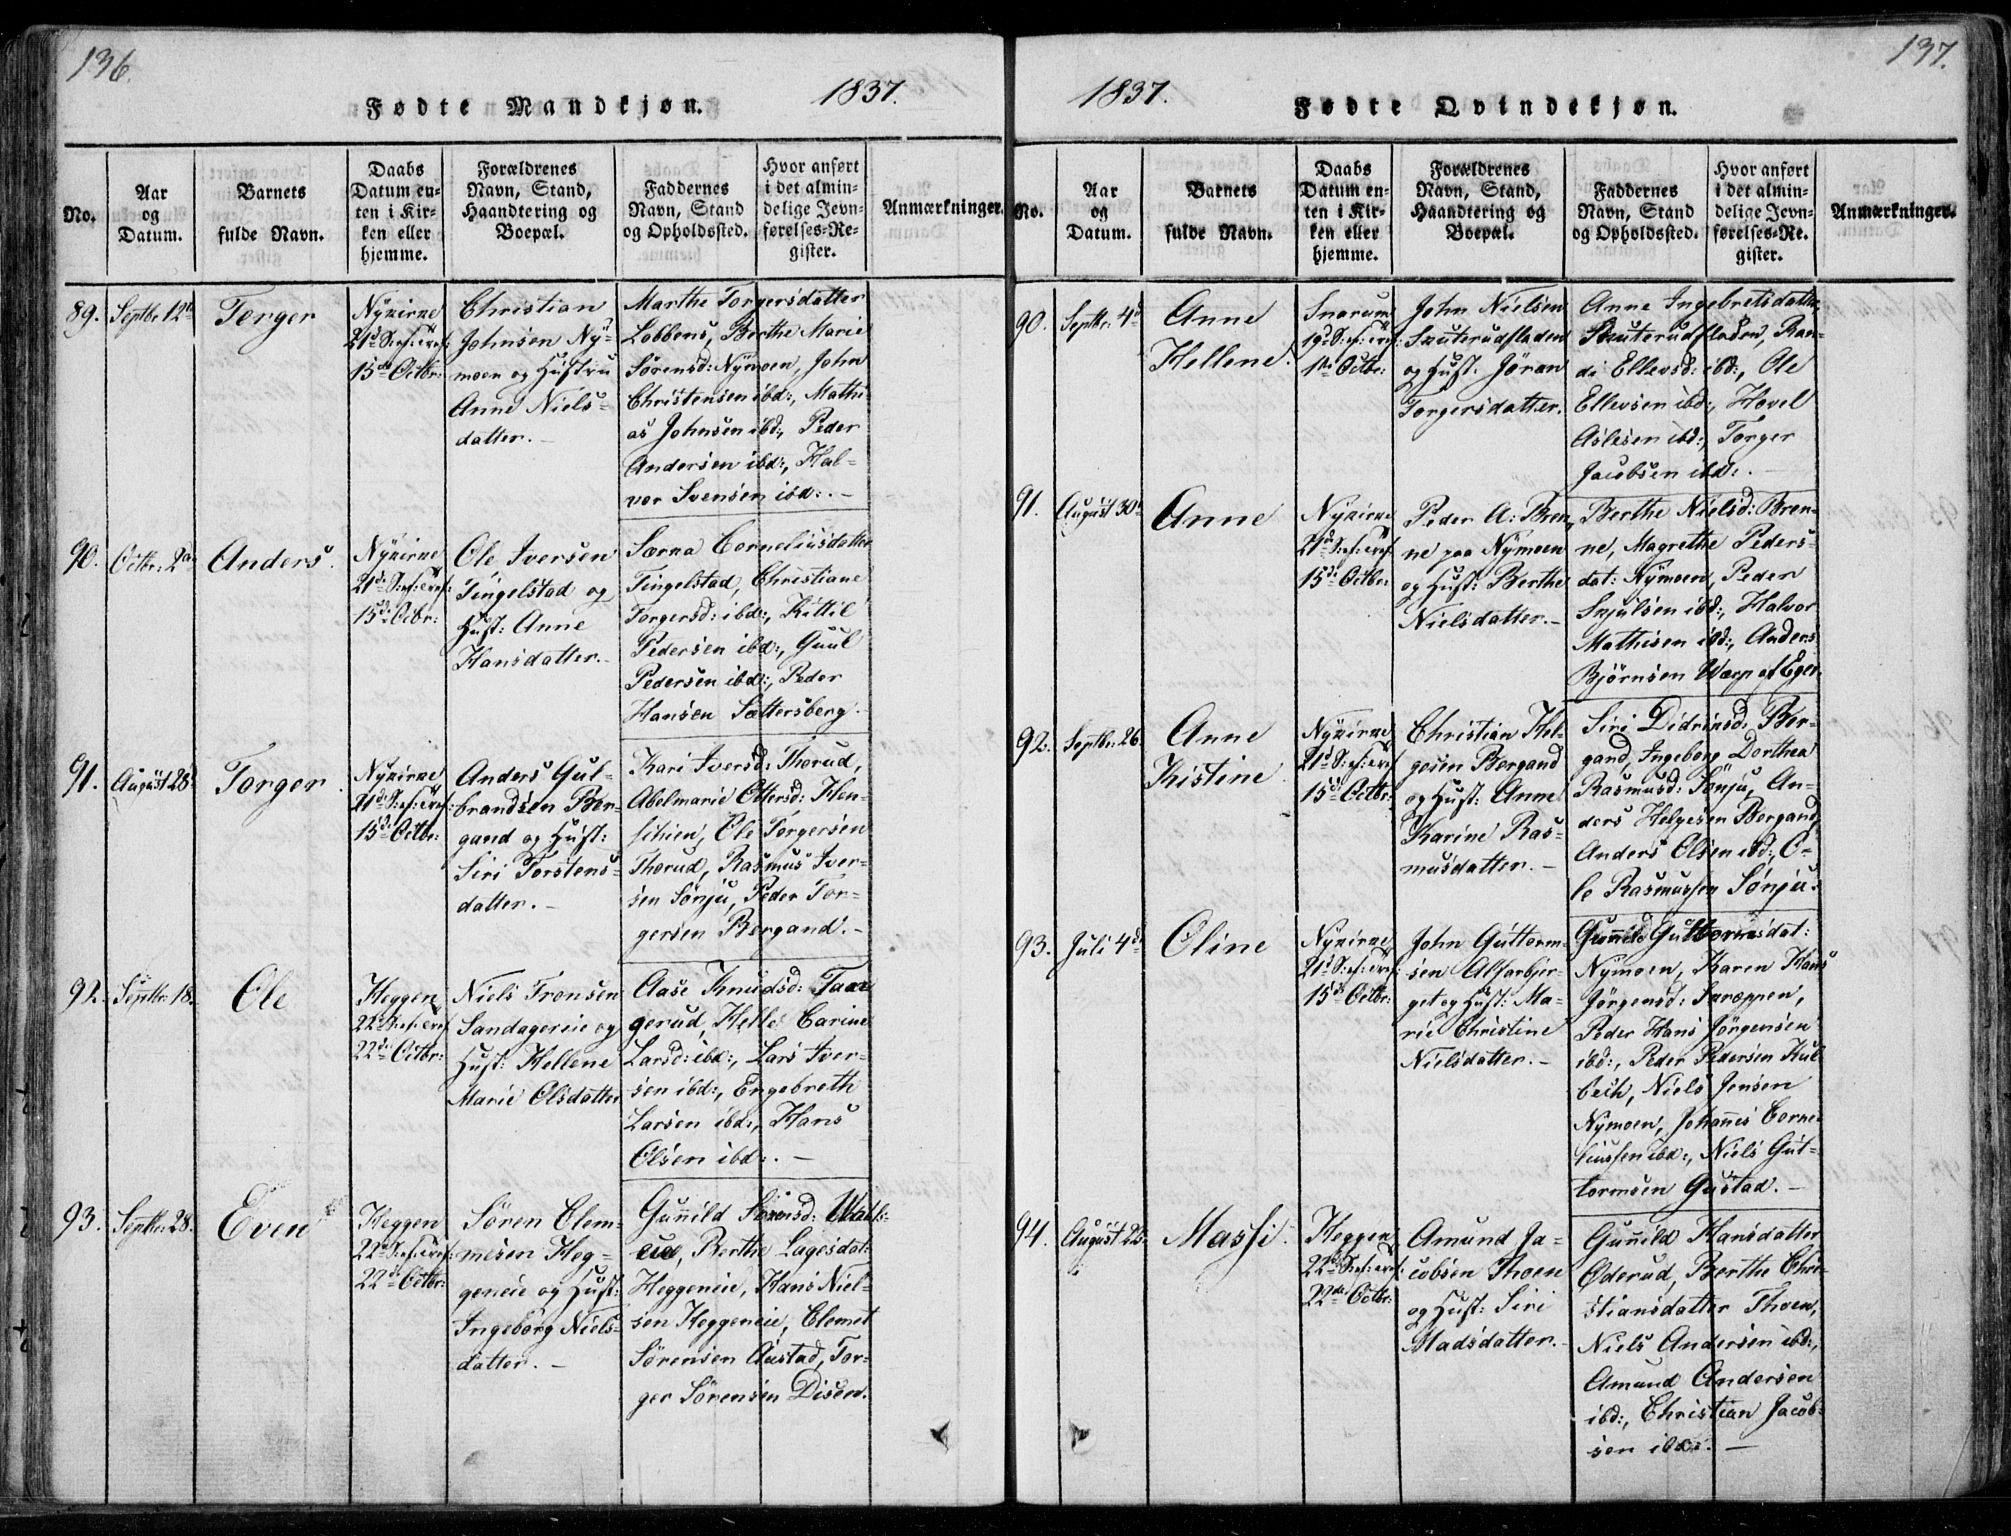 136.
Fødte Mandkjøn.
1837.
No.
Aar
og
Datum.
Barnets
fulde Navn.
Daabs
Datum en-
ten i Kir-
ken eller
hjemme.
Forældrenes
Navn, Stand,
Haandtering og
Boepæl.
Faddernes
Navn, Stand
og Opholdssted.
Hvor anført
i det almin-
delige Jevn-
førelses-Re-
gister.
Anmærkninger.
89.
Septbr. 12te
Torger
Nykirke
21d S: ef: Tref:
15de Octbr:
Christian
Johnsen Ny-
moen og Hustru
Anne Niels-
datter. –
Marthe Torgersdatter
Lobbens, Berthe Marie
Sørensd: Nymoen, John
Christensen ibd:, Mathi-
as Johnsen ibd:, Peder
Andersen ibd:, Hal-
vor Svensen ibd:. –
90.
Octbr: 2den
Anders.
Nykirke
21de S: ef: Tref:
15d Ocbr:
Ole Iversen
Tingelstad og
Hust: Anne
Hansdatter. –
Særna Corneliusdatter
Tingelstad, Christiane
Torgersd: ibd:, Kittil
Pedersen ibd:, Guul
Pedersen ibd:, Peder
Hansen Sættersberg.
91.
August 28
Torger.
Nykirke
21de S: ef: Tref:
15d Octbr:
Anders Gul-
brandsen Ber-
gand og Hust:
Siri Torstens-
datter. –
Kari Iversd: Thorud,
Abelmarie Ottersd: Hen-
schien, Ole Torgersen
Thorud, Rasmus Iver-
sen Sønju, Peder Tor-
gersen Bergand. –
92.
Septbr: 18.
Ole
Heggen
22d S: ef: Tref:
22de Octbr:
Niels Tronsen
Sandagereie og
Hust: Hellene
Marie Olsdatter
Aase Knudsd: Taan
gerud, Helle Carine
Larsd: ibd:, Lars Iver-
sen ibd:, Engebreth
Larsen ibd:, Hans
Olsen ibd:. –
93.
Septbr: 28.
Even
Heggen
22d S: ef: Tref:
22de Octbr:
Søren Clem-
mesen Heg-
geneie og Hust:
Ingeborg Niels-
datter. –
Guñild Sørensd:
Berthe Lagesdat:
Heggeneie, Hans Niel-
sen Heggeneie, Clemet
Sørensen Austad, Tor-
ger Sørensen Disen.
137.
1837.
Fødte Qvindekjøn.
No.
Aar
og
Datum.
Barnets
fulde Navn.
Daabs
Datum en-
ten i Kir-
ken eller
hjemme.
Forældrenes
Navn, Stand,
Haandtering og
Boepæl.
Faddernes
Navn, Stand
og Opholdssted.
Hvor anført
i det almin-
delige Jevn-
førelses-Re-
gister.
Anmærkninger.
90.
Septbr: 4d
Anne
Hellene.
Snarum
19d S: ef: Tref:
1ste Octbr:
John Nielsen
Skuterudfladen
og Hust: Jøran
Torgersdatter.
Anne Ingebretsdatter
Skuterudfladen, Ran-
di Ellevsd: ibd:, Ole
Ellevsen ibd:, Hovel
Aslesen ibd:, Torger
Jacobsen ibd:. –
91.
August 30te
Anne
Nykirke
21d S: ef: Tref:
15d Octbr:
Peder A: Bren
ne paa Nymoen
og Hust: Berthe
Nielsdatter. –
Berthe Nielsd: Bren-
ne, Magrethe Peders-
dat: Nymoen, Peder
Skjulsen ibd:, Halvor
Mathisen ibd:, Anders
Bjørnsen Warp af Eger.
92.
Septbr: 26.
Anne
Kistine
Nykirke
21d S: ef: Tref:
15d Octbr:
Christian Hel-
gesen Bergand
og Hust: Anne
Karine Ras-
musdatter. –
Siri Didriksd: Ber-
gand, Ingeborg Dorthea
Rasmusd: Sønju, An-
ders Helgesen Bergand,
Anders Olsen ibd:, O-
le Rasmussen Sønju.
93.
Juli 4de
Oline
Nykirke
21d S: ef: Tref:
15d Octbr:
John Guttorm-
sen Alfarbjer-
get og Hust: Ma-
rie Christine
Nielsdatter. –
Guñild Guttormsdat:
Nymoen, Karen Hans
Jørgensd: Snæppen,
Peder Hans Jørgensen
ibd:, Peder Pedersen Kul
bech, Niels Jensen
Nymoen, Johañes Corne-
liussen ibd:, Niels Gut-
tormsen Gustad. –
94.
August 25.
Massi.
Heggen
22d S: ef: Tref:
22de Octbr:
Amund Ja-
cobsen Thoen
og Hust: Siri
Madsdatter. –
Guñild Hansdatter
Øderud, Berthe Chri-
stiansdatter Thoen,
Niels Andersen ibd:,
Amund Andersen
ibd:, Christian Jacob-
sen ibd:. –